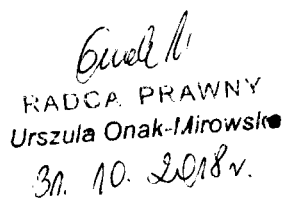 RADCA PRAWNY
Urszula Onak-Mirowska
31. 10. 2018 r.